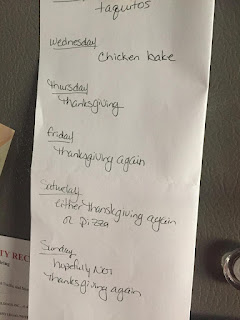 taquitos
Wednesday
Chicken bake
Thursday
Thanksgiving
Friday
Thanksgiving again
Saturday
either Thanksgiving again
or pizza
Sunday
hopefully NOT
Thanksgiving again
TY REC